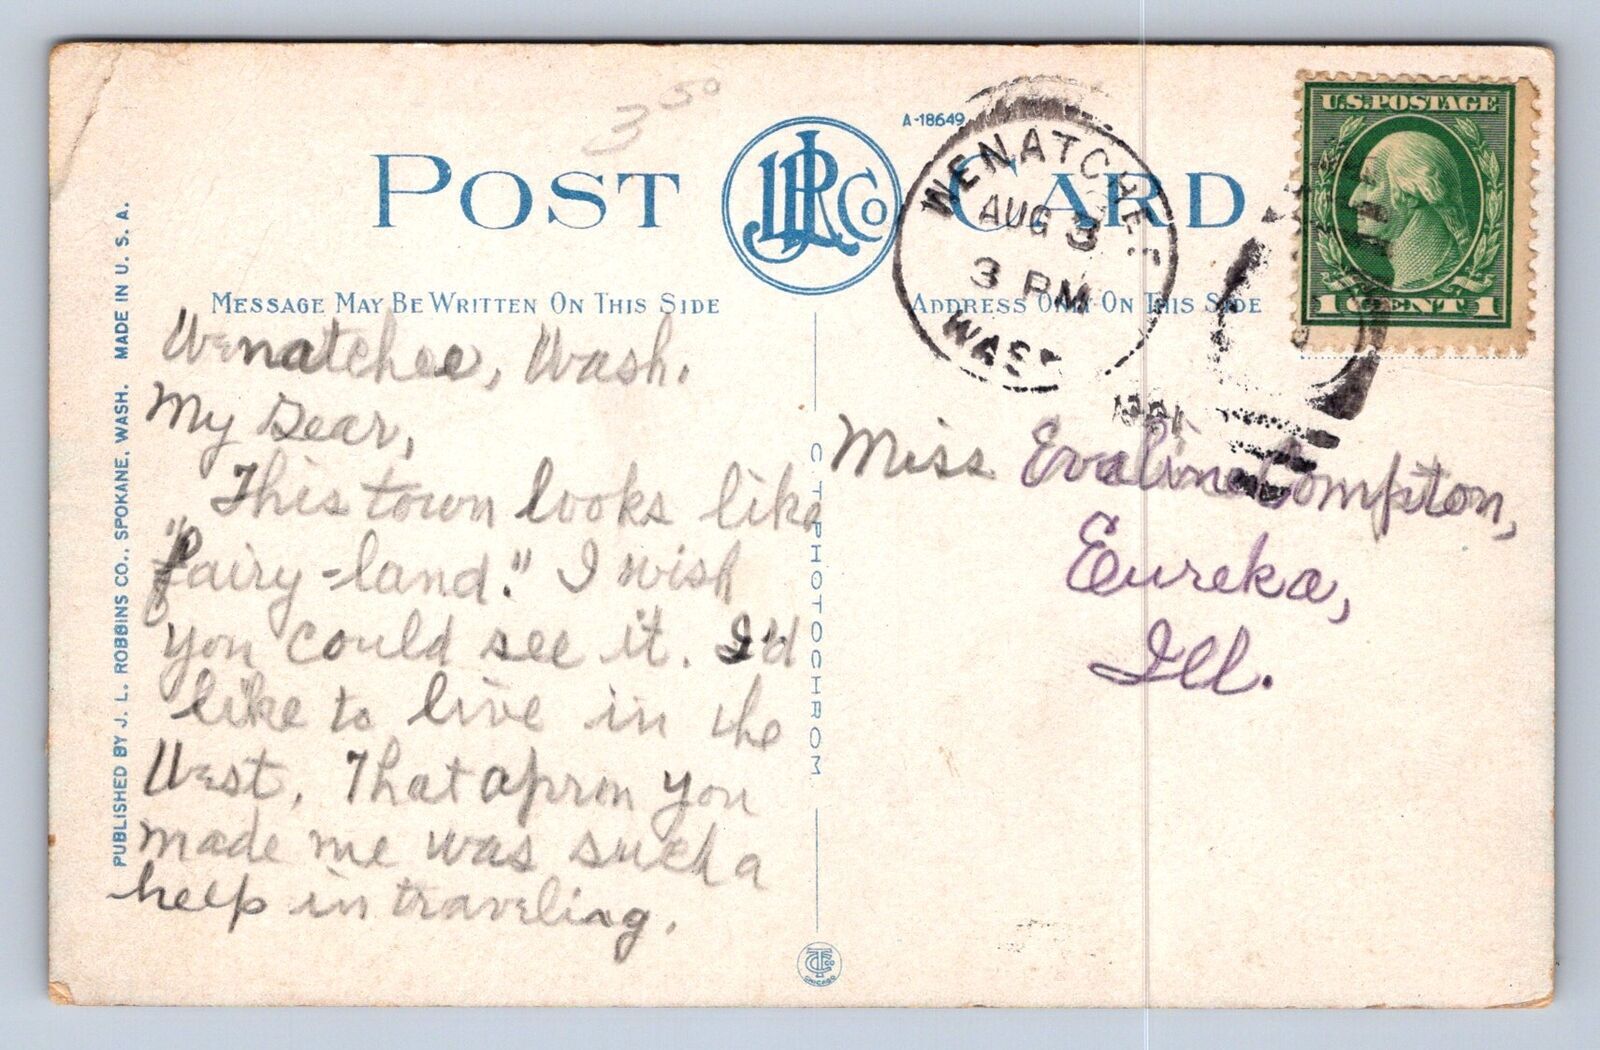 3 50
A-18649
POST CARD
JLR Co
WENATCHEE
AUG 3
3 PM
WASH
U.S. POSTAGE
1 CENT 1
MESSAGE MAY BE WRITTEN ON THIS SIDE
ADDRESS ONLY ON THIS SIDE
Wenatchee, Wash.
My Dear,
This town looks like
"fairy-land." I wish
you could see it. I'd
like to live in the
West. That apron you
made me was such a
help in traveling.
Miss Evaline Compton,
Eureka,
Ill.
C. T. PHOTOCHROM
PUBLISHED BY J. L. ROBBINS CO., SPOKANE, WASH. MADE IN U. S. A.
CHICAGO